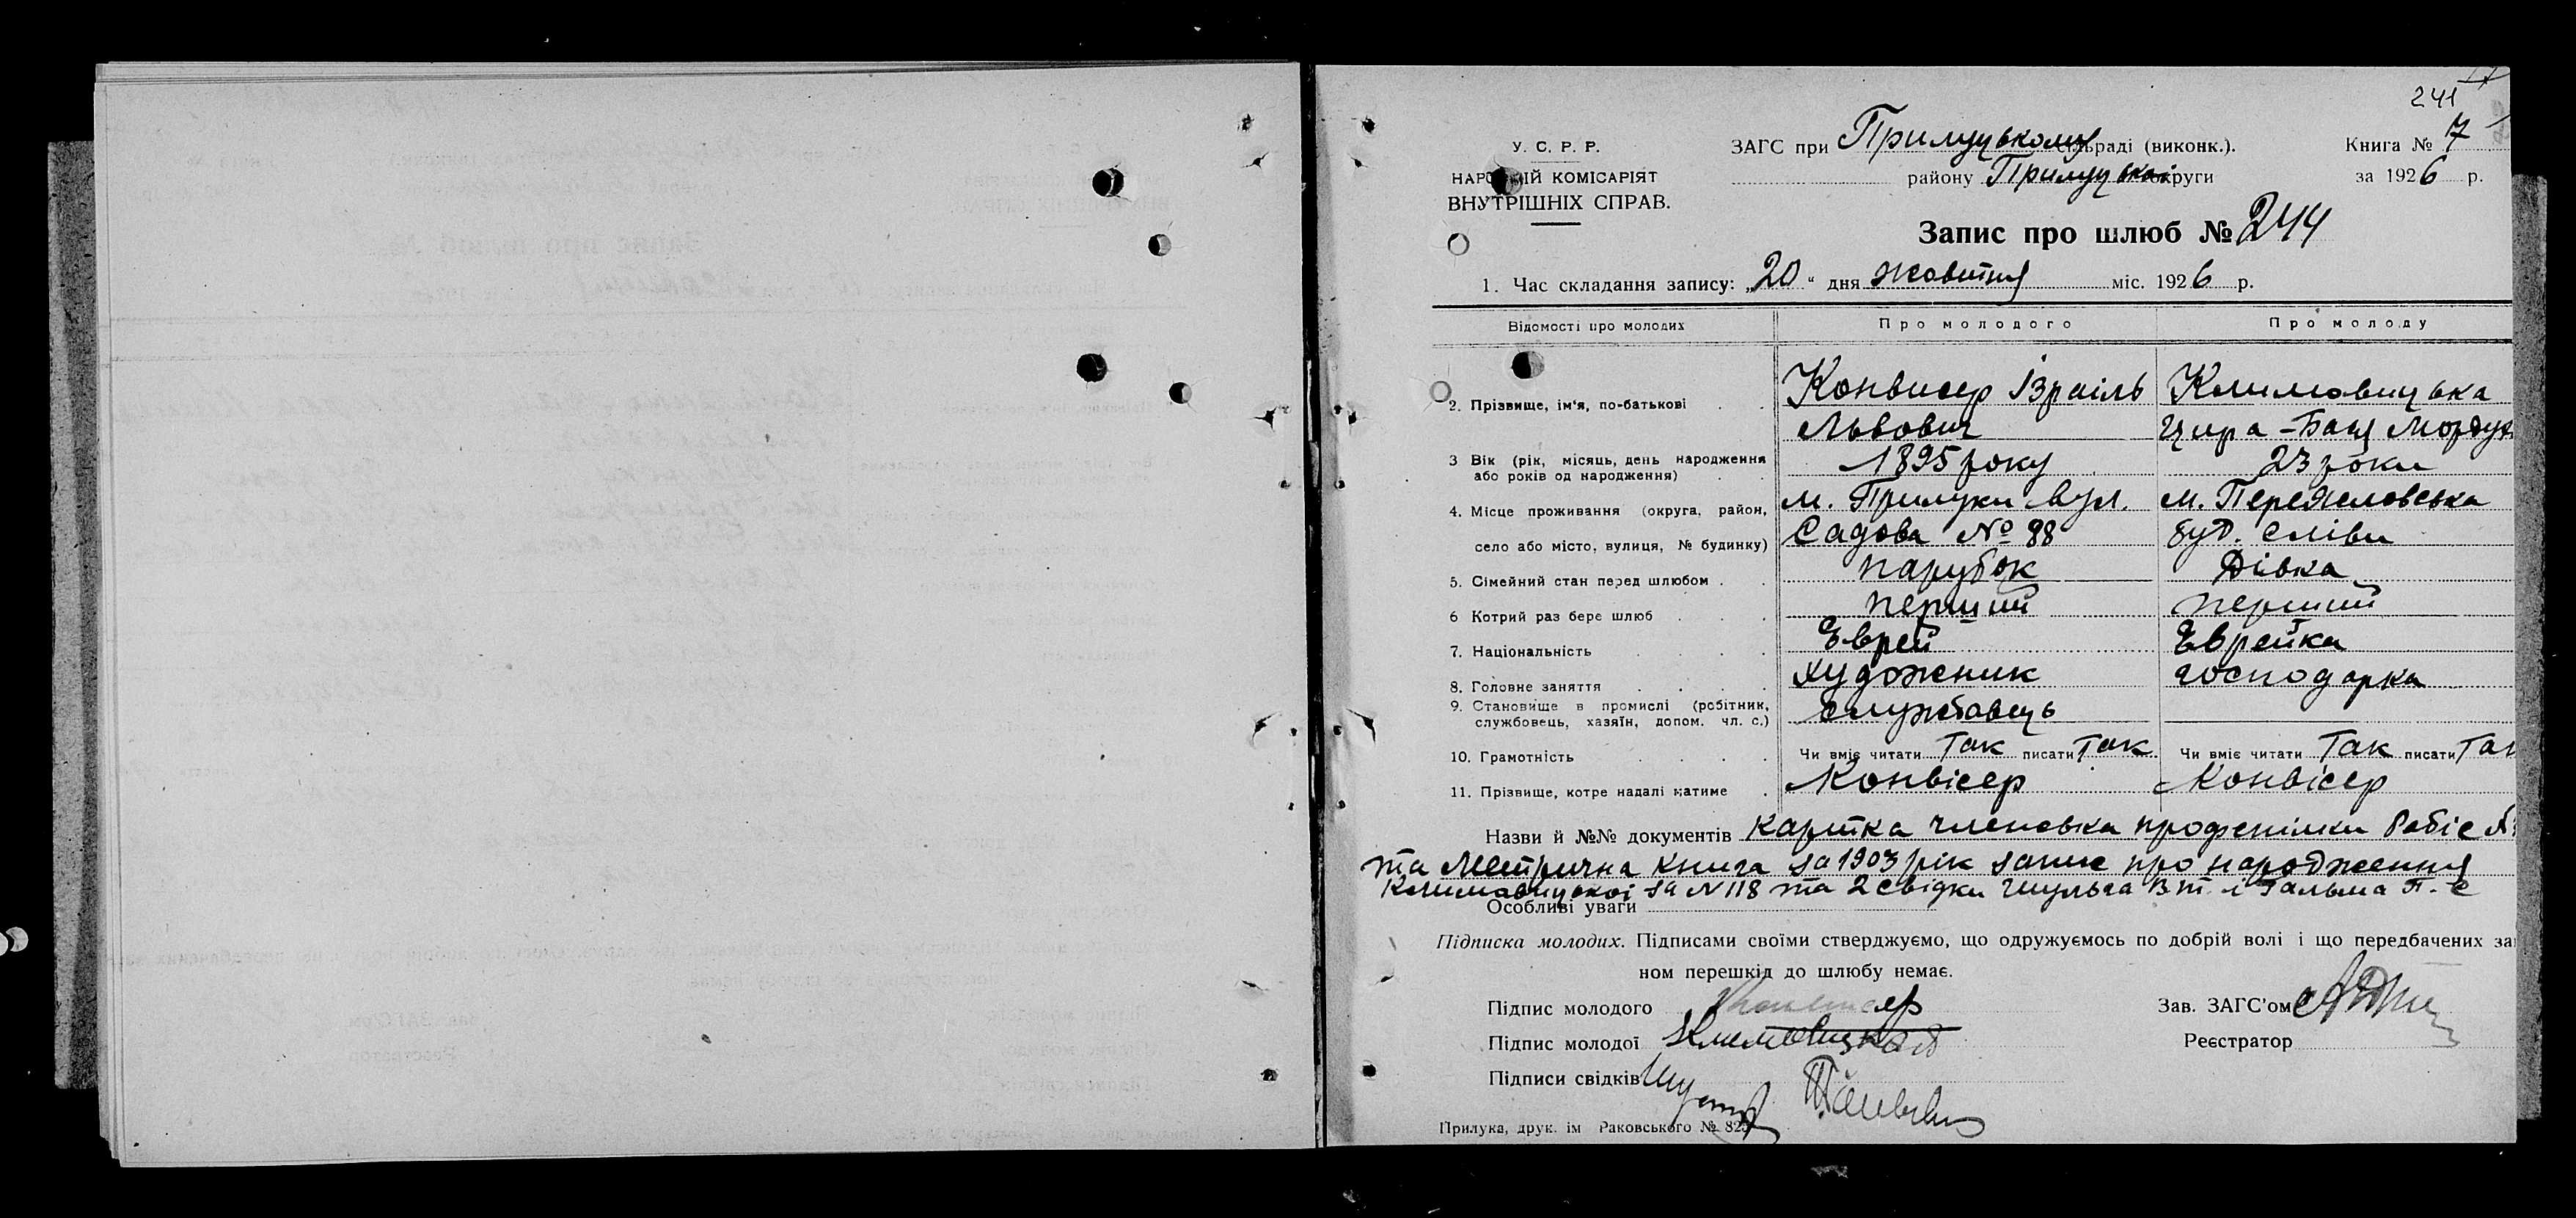 241
У. С. Р. Р.
НАРОДНІЙ КОМІСАРІЯТ
ВНУТРІШНІХ СПРАВ.
ЗАГС при Прилуцькому сільраді (виконк.).
району Прилуцької округи
Книга № 17
за 1926 р.
Запис про шлюб № 244
1. Час складання запису: „20“ дня жовтня міс. 1926 р.
Відомості про молодих Про молодого Про молоду
2. Прізвище, ім'я, по-батькові Конвисер Ізраіль Климовицька
Львович Цира-Бася Мордух
3 Вік (рік, місяць, день народження або років од народження) 1895 року 23 роки
4. Місце проживання (округа, район, м. Прилуки вул. м. Переясловська
село або місто, вулиця, № будинку) Садова № 88 буд. Сліви
5. Сімейний стан перед шлюбом парубок Дівка
6 Котрий раз бере шлюб перший перший
7. Національність Еврей Еврейка
8. Головне заняття художник господарка
9. Становище в промислі (робітник, службовець, хазяїн, допом. чл. с.) службовець
10. Грамотність Чи вміє читати Так писати Так Чи вміє читати Так писати Так
11. Прізвище, котре надалі матиме Конвісер Конвісер
Назви й №№ документів Картка членська профспілки Робіс №
та Метрична книга за 1903 рік запис про народження
Климовицькоі за N 118 та 2 свідки Шульга В.т. і Гальма П.
Особливі уваги
Підписка молодих. Підписами своїми стверджуємо, що одружуємось по добрій волі і що передбачених за
ном перешкід до шлюбу немає.
Підпис молодого Конвисер
Зав. ЗАГС'ом
Підпис молодої Климовицкая
Реєстратор
Підписи свідків
Прилука, друк. ім Раковського № 825